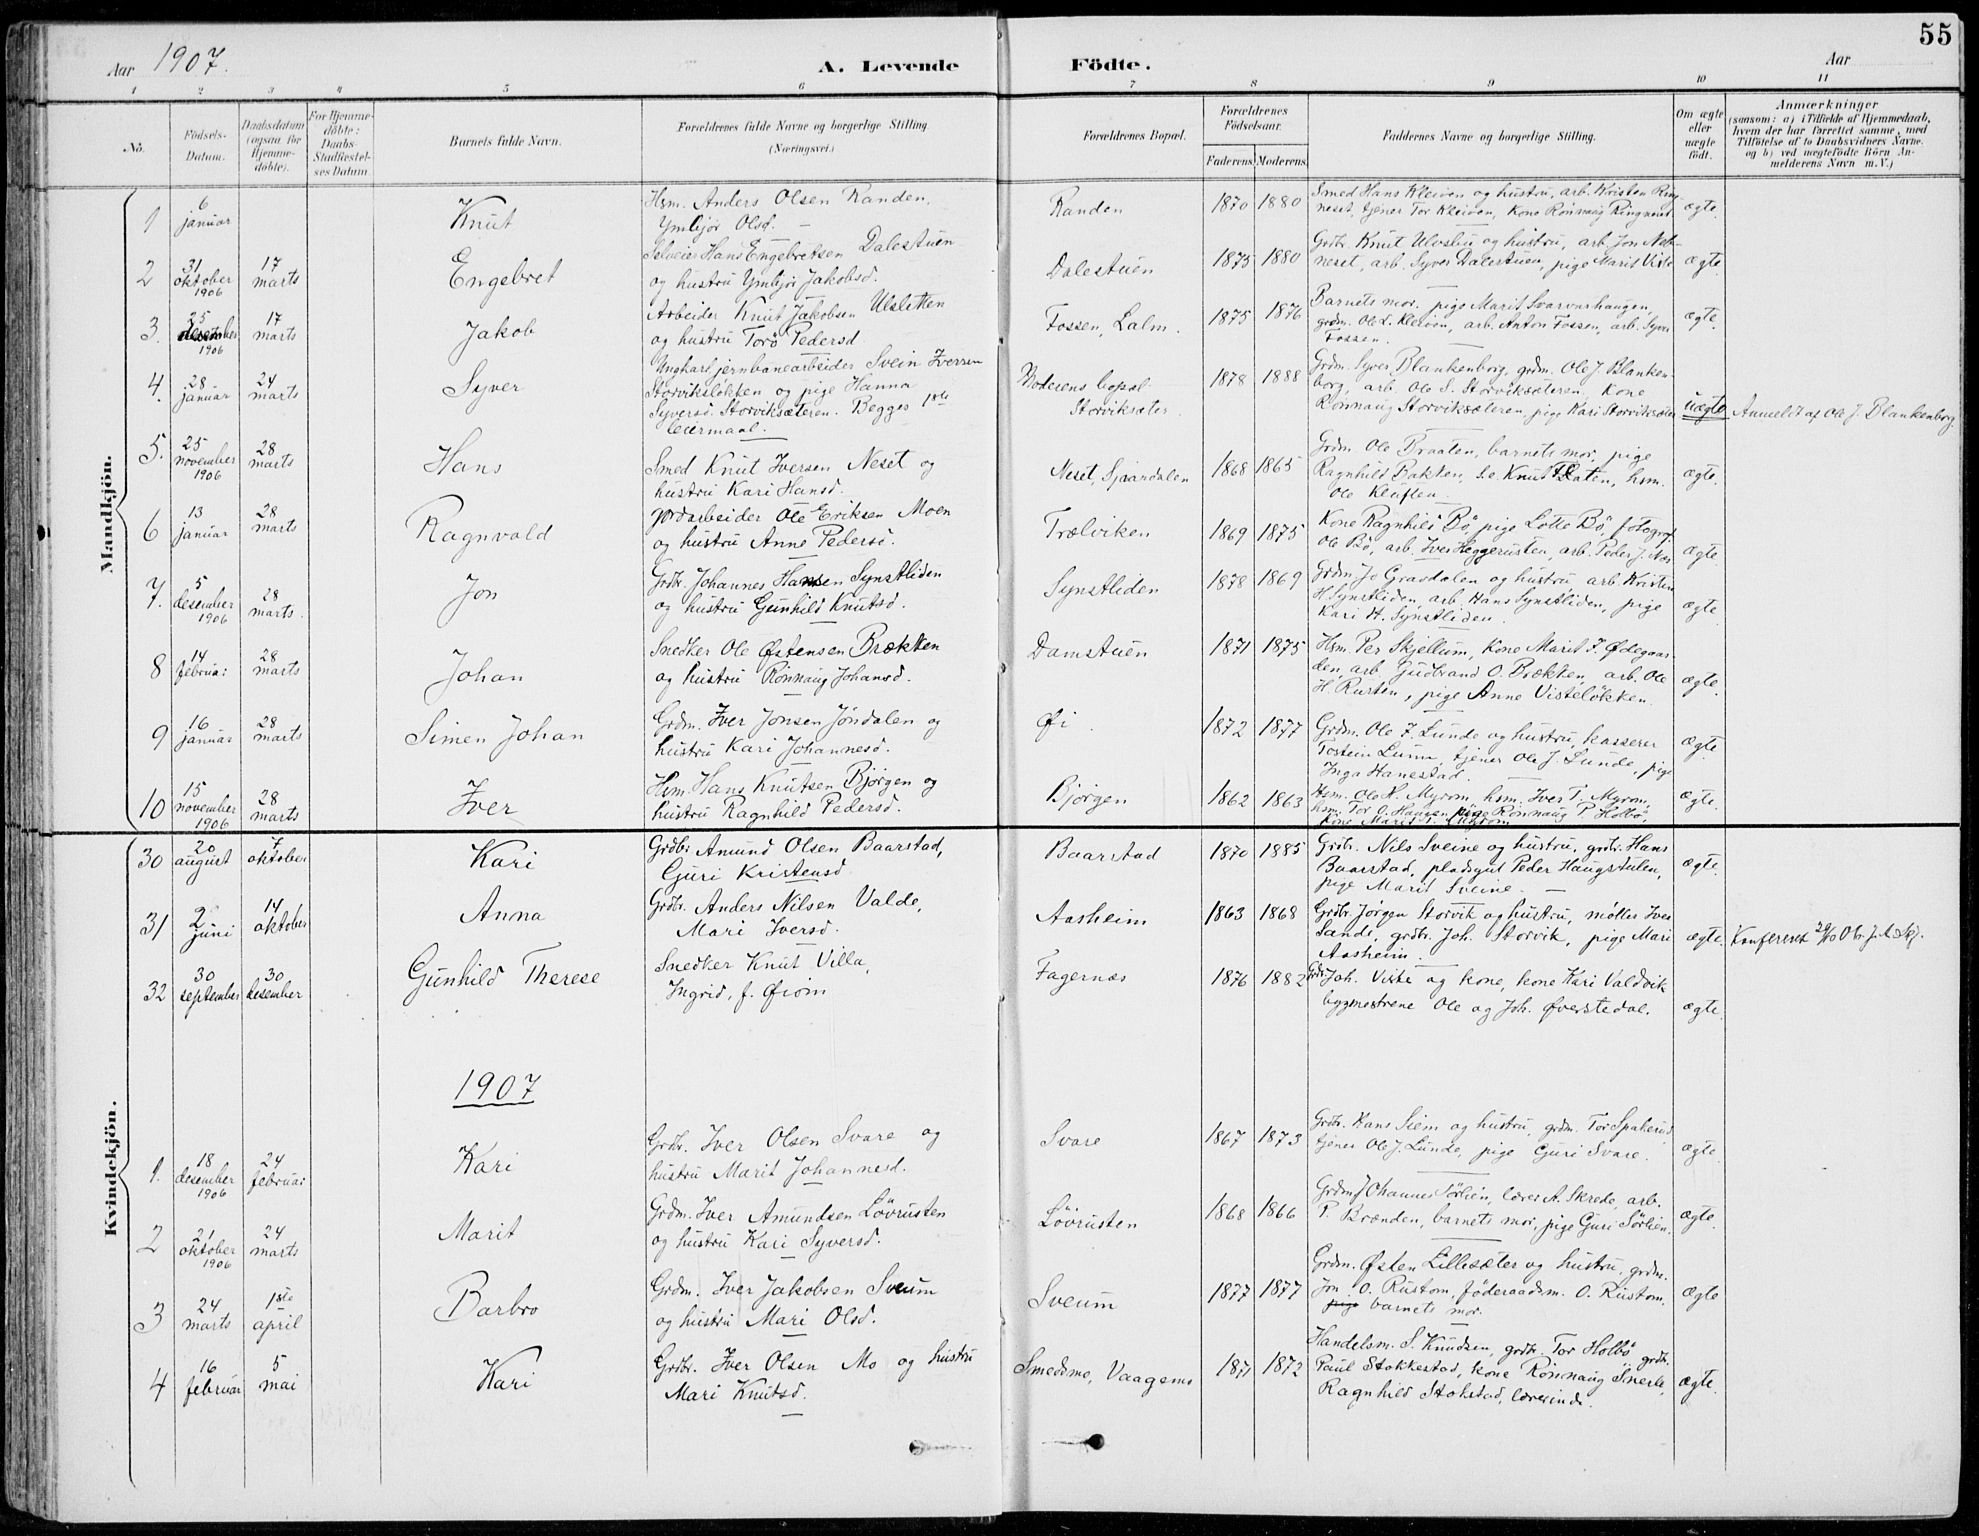 55
Aar 1907.
A. Levende Födte.
Aar
1 2 3 4 5 6 7 8 9 10 11
No.
Födsels-Datum.
Daabsdatum (ogsaa for Hjemme-döbte).
For Hjemme-döbte: Daabs-Stadfæstel-ses Datum
Barnets fulde Navn.
Forældrenes fulde Navne og borgerlige Stilling. (Næringsvei.)
Forældrenes Bopæl.
Forældrenes Födselsaar.
Faderens. Moderens.
Faddernes Navne og borgerlige Stilling.
Om ægte eller uægte født.
Anmærkninger (saasom: a) i Tilfælde af Hjemmedaab, hvem der har forrettet samme, med Tilföielse af to Daabsvidners Navne. og b) ved uægtefödte Börn An-melderens Navn m. V.)
Mandkjön.
1 6 januar Knut
Hsm. Anders Olsen Randen,
Ymbjör Olsd.
Randen 1870 1880
Smed Hans Kleiven og hustru, arb. Kristen Ring
neset, tjener Tor Kleiven, Kone Rönnaug Ringneset
ægte.
2 31 oktober 1906 17 marts Engebret
Selveier Hans Engebretsen Dalestuen
og hustru Ymbjör Jakobsd.
Dalestuen 1875 1880
Grdbr. Knut Ulvsbu og hustru, arb. Jon Neb-
neset, arb. Syver Dalestuen, pige Marit Viste
ægte.
3. 25 desember 1906 17 marts Jakob
Arbeider Knut Jakobsen Ulsletten
og hustru Torö Pedersd
Fossen, Lalm. 1875 1876
Barnets mor, pige Marit Svarvarhaugen,
grdm. Ole L. Kleiven, arb. Anton Fossen, arb. Syver
Fossen.
ægte.
4. 28 januar 24 marts Syver
Ungkarl jernbanearbeider Svein Iversen
Storviksløkken og pige Hanna
Syversd. Storviksæteren. Begges 1ste
leiermaal.
Moderens bopæl Storviksæter. 1878 1888
Grdm. Syver Blankenborg, grdm. Ole J. Blanken-
borg, arb. Ole S. Storviksæteren, Kone
Rönnaug Storviksæteren, pige Kari Storviksæter
uægte Anmeldt af Ole J. Blankenborg.
5. 25 november 1906 28 marts Hans
Smed Knut Iversen Neset og
hustru Kari Hansd.
Neset, Sjaardalen 1868 1865
Grdm. Ole Braaten, barnets mor, pige
Ragnhild Bakken, s.e. Knut Daten, hsm.
Ole Kleiften.
ægte.
6 13 januar 28 marts Ragnvald
Jordarbeider Ole Eriksen Moen
og hustru Anne Pedersd.
Trælviken 1869 1875
Kone Ragnhild Bö, pige Lotte Bö, fotograf
Ole Bö, arb. Iver Heggerusten, arb. Peder J. Mo
ægte.
7. 5 desember 1906 28 marts. Jon
Grdbr. Johannes Hansen Synstliden
og hustru Gunhild Knutsd.
Synstliden 1878 1869
Grdm Jo Gravdalen og hustru, arb. Kristen
H. Synstliden, arb. Hans Synstliden, pige
Kari H. Synstliden.
ægte.
8 14 februar 28 marts Johan
Snedker Ole Østensen Brækken
og hustru Rönnaug Johansd.
Damstuen 1871 1875
Hsm. Per Skjellum, Kone Marit J. Ødegaar-
den, arb. Gudbrand O. Brækken, arb. Ole
H. Rusten, pige Anne Visteløkken.
ægte.
9 16 januar 28 marts Simen Johan
Grdm. Iver Jonsen Jöndalen og
hustru Kari Johannesd.
Øi 1872 1877
Grdm. Ole J. Lunde og hustru, kasserer
Tostein Lunn, tjener Ole J. Lunde, pige
Inga Hanestad.
ægte.
10 15 november 1906 28 marts Iver
Hsm. Hans Knutsen Björgen og
hustru Ragnhild Pedersd.
Bjørgen 1862 1863
Hsm. Ole H. Myrom, hsm. Iver T. Myrom,
hsm. Tor O. Haugen, pige Rönnaug P. Holbö,
Kone Marit
ægte.
Kvindekjön.
30 20 august 7 oktober Kari
Grdbr. Amund Olsen Baarstad,
Guri Kristensd.
Baarstad 1870 1885
Grdbr. Nils Sveine og hustru, grdbr. Hans
Baarstad, pladsgut Peder Haugstulen,
pige Marit Sveine.
ægte.
31 2 juni 14 oktober Anna
Grdbr. Anders Nilsen Valde,
Mari Iversd.
Aasheim 1863 1868
Grdbr. Jörgen Storvik og hustru, møller Iver
Sande, grdbr. Joh. Storvik, pige Mari
Aasheim.
ægte. Konfereret 29/10
32 30 september 30 desember Gunhild Therese
Snedker Knut Villa,
Ingrid, f. Øiom
Fagernæs 1876 1882
Grdbr. Joh. Viste og kone, kone Kari Valdvik
bygmestrene Ole og Joh. Øverstedal.
ægte.
1907
1. 18 desember 1906 24 februar Kari
Grdbr. Iver Olsen Svare og
hustru Marit Johannesd.
Svare 1867 1873
Grdbr. Hans Siem og hustru, grdm. Tor Spakerud
tjener Ole J. Lunde, pige Guri Svare.
ægte.
2 21 oktober 1906 24 marts Marit
Grdm. Iver Amundsen Lövrusten
og hustru Kari Syversd.
Lövrusten 1868 1866
Grdm Johannes Sörlien, lærer A. Skrede, arb.
P. Brænden, barnets mor, pige Guri Sörlien.
ægte.
3 24 marts 1ste april Barbro
Grdm. Iver Jakobsen Sveum
og hustru Mari Olsd.
Sveum 1877 1877
Grdm. Østen Lillesæter og hustru, grdm.
Jon O. Rustom, föderaadsm. O. Rustom,
pige barnets mor.
ægte
4 16 februar 5 mai Kari
Grdbr. Iver Olsen Mo og hustru
Mari Knutsd.
Smedsmo, Vaagemo 1871 1872
Handelsm. S. Knudsen, grdbr. Tor Holbö, grdbr.
Paul Stokkestad, kone Rönnaug Snerle,
Ragnhild Stokstad, lærerinde.
ægte.